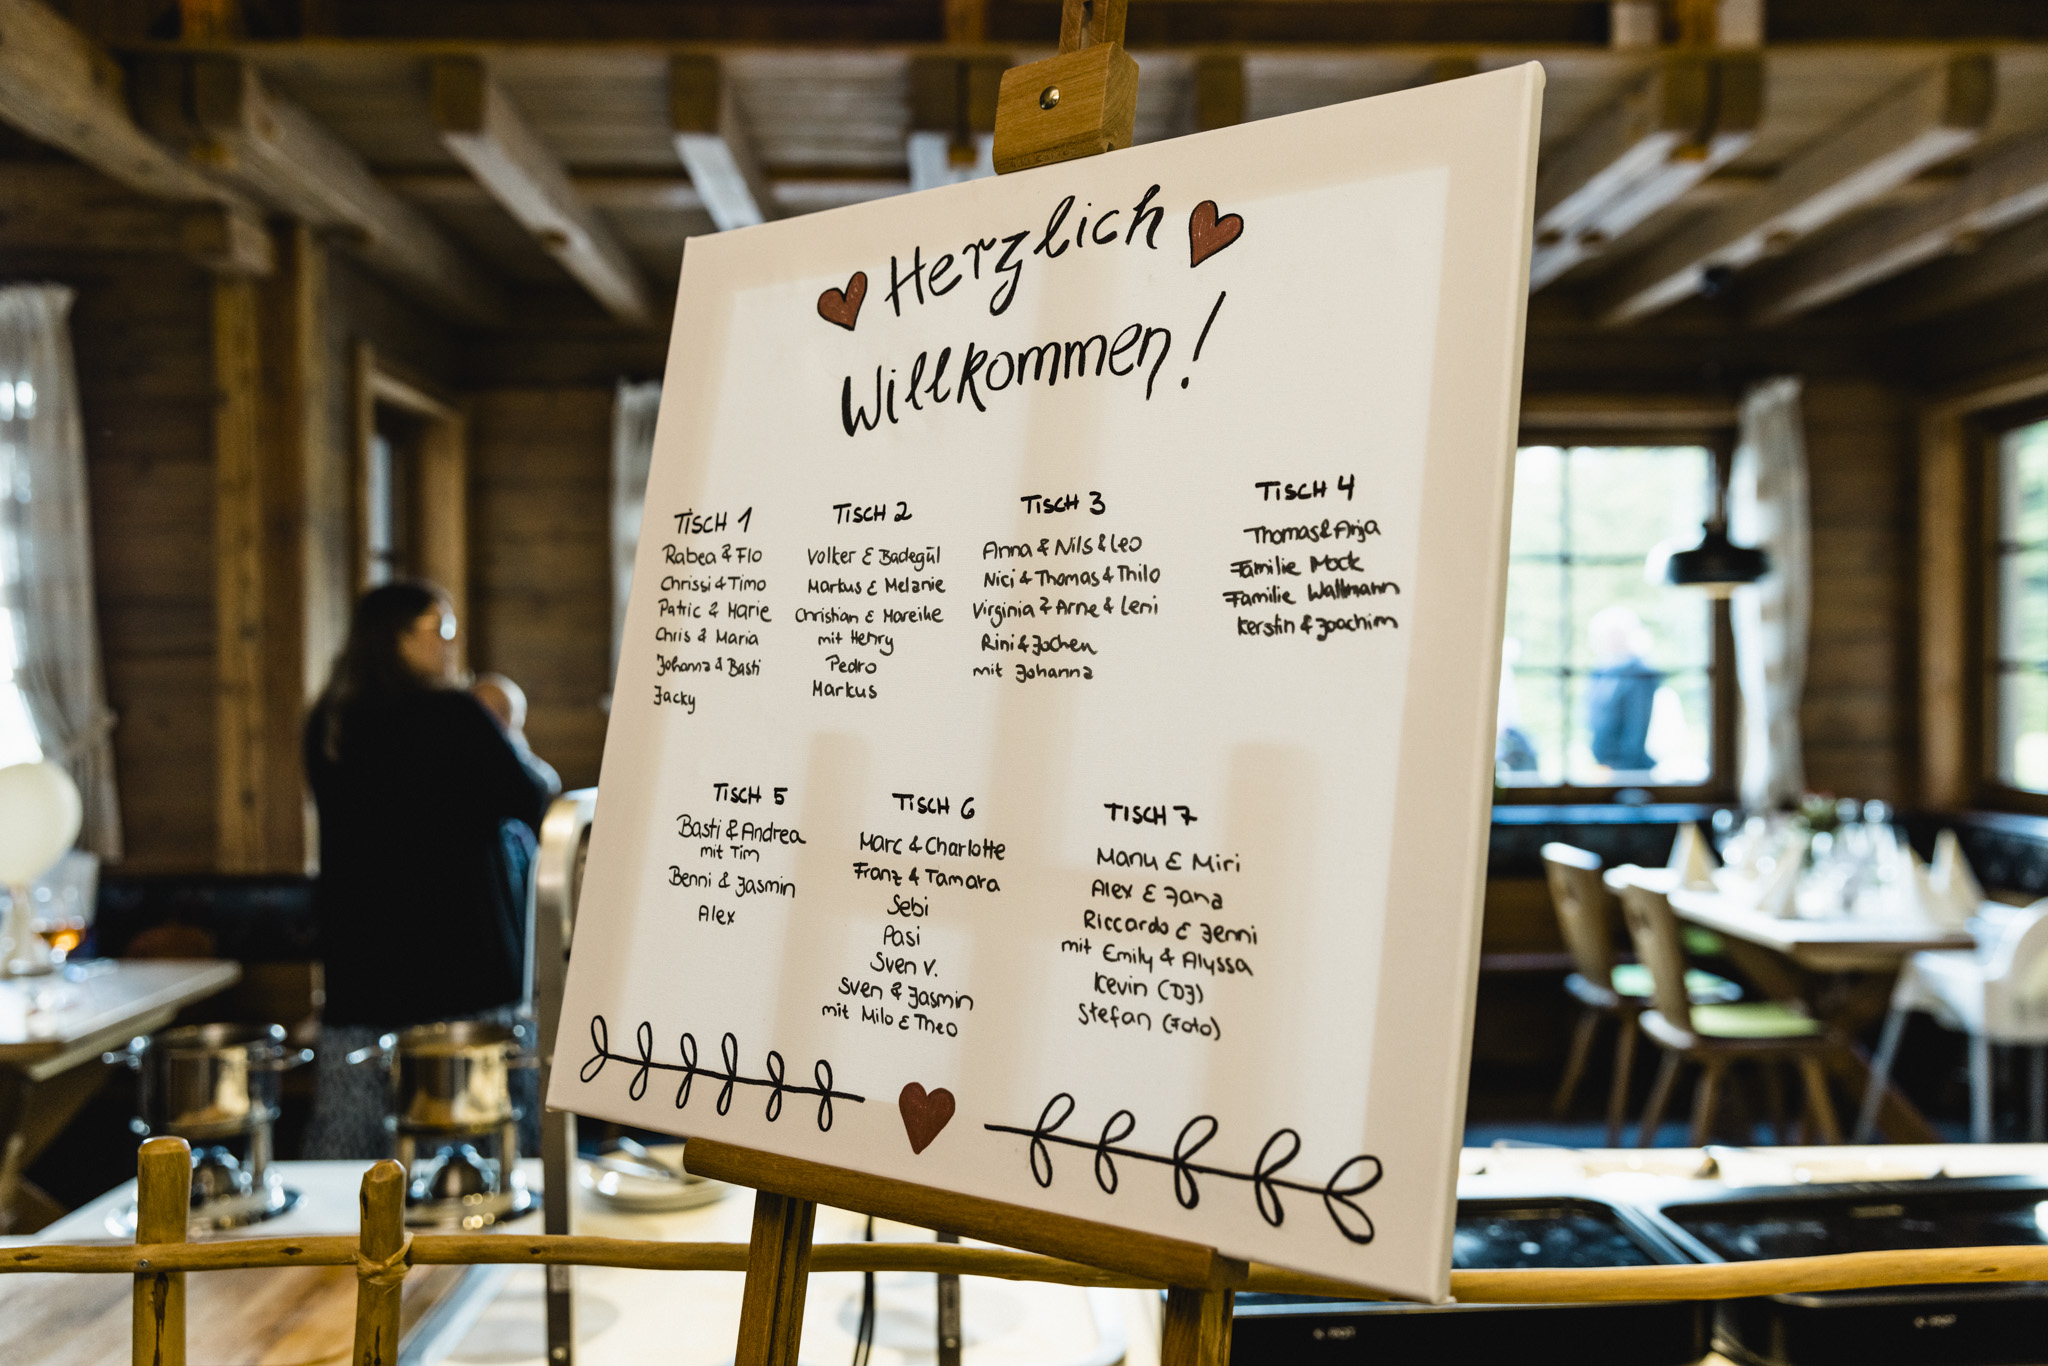 Herzlich
Willkommen!
TISCH 1
Rabea & Flo
Chrissi & Timo
Patric & Marie
Chris & Maria
Johanna & Basti
Jacky
TISCH 2
Volker & Badegül
Markus & Melanie
Christian & Mareike
mit Henry
Pedro
Markus
TISCH 3
Anna & Nils & Leo
Nici & Thomas & Thilo
Virginia & Arne & Leni
Rini & Jochen
mit Johanna
TISCH 4
Thomas & Anja
Familie Mock
Familie Wallmann
Kerstin & Joachim
TISCH 5
Basti & Andrea
mit Tim
Benni & Jasmin
Alex
TISCH 6
Marc & Charlotte
Franz & Tamara
Sebi
Pasi
Sven V.
Sven & Jasmin
mit Milo & Theo
TISCH 7
Manu & Miri
Alex & Jana
Riccardo & Jenni
mit Emily & Alyssa
Kevin (DJ)
Stefan (Foto)